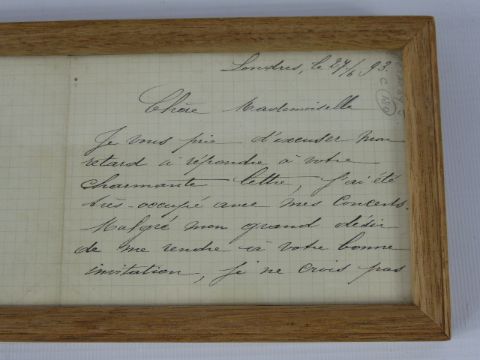 Londres, le 27/6 93.
Chère Mademoiselle
Je vous prie d'excuser mon
retard à répondre à votre
charmante lettre, j'ai été
très-occupé avec mes Concerts.
Malgré mon grand désir
de me rendre à votre bonne
invitation, je ne crois pas